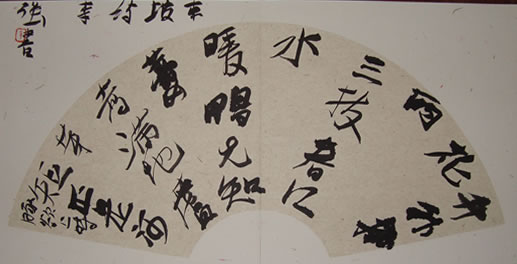 竹外桃花
两
三枝春江
水
暖鸭先知
蒌
蒿满地芦
芽
短正是河
豚欲上时
东坡诗
书